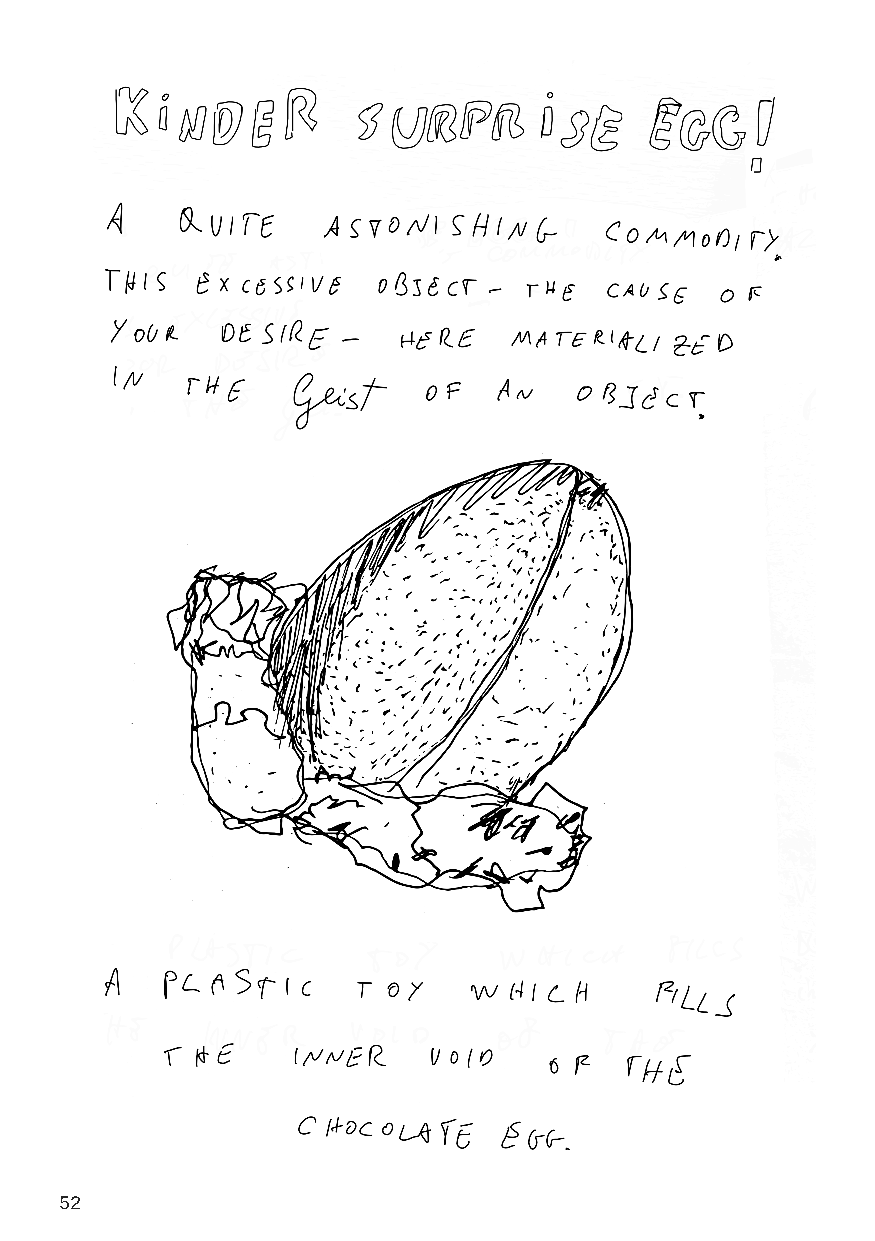 KiNDER SURPRiSE EGG!
A QUITE ASTONISHING COMMODITY.
THIS EXCESSIVE OBJECT – THE CAUSE OF
YOUR DESIRE – HERE MATERIALIZED
IN THE Geist OF AN OBJECT.
A PLASTIC TOY WHICH FILLS
THE INNER VOID OF THE
CHOCOLATE EGG.
52